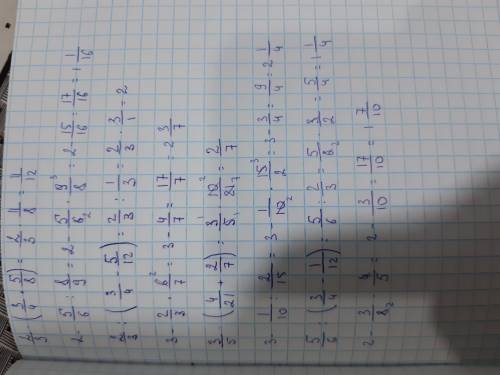 2/3 · (3/4 - 5/8) = 2/3 · 1/8 = 1/12
2 - 5/6 : 8/9 = 2 - 5/6₂ · 9³/8 = 2 - 15/16 = 17/16 = 1 1/16
2/3 : (3/4 - 5/12) = 2/3 : 1/3 = 2/3 · 3/1 = 2
3 - 2/3 · 6²/7 = 3 - 4/7 = 17/7 = 2 3/7
3/5 · (4/21 + 2/7) = 3¹/5₁ · 10²/21₇ = 2/7
3 - 1/10 : 2/15 = 3 - 1/10₂ · 15³/2 = 3 - 3/4 = 9/4 = 2 1/4
5/6 : (3/4 - 1/12) = 5/6 : 2/3 = 5/6₂ · 3/2 = 5/4 = 1 1/4
2 - 3/8₂ · 4/5 = 2 - 3/10 = 17/10 = 1 7/10